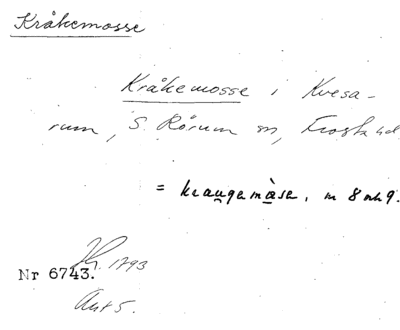 Kråkemosse
Kråkemosse i Kvesa-
rum, S. Rörum sn, Frosta hd.
= kraugamàsa, m 8 och 9.
1793
Nr 6743.
Ant 5.